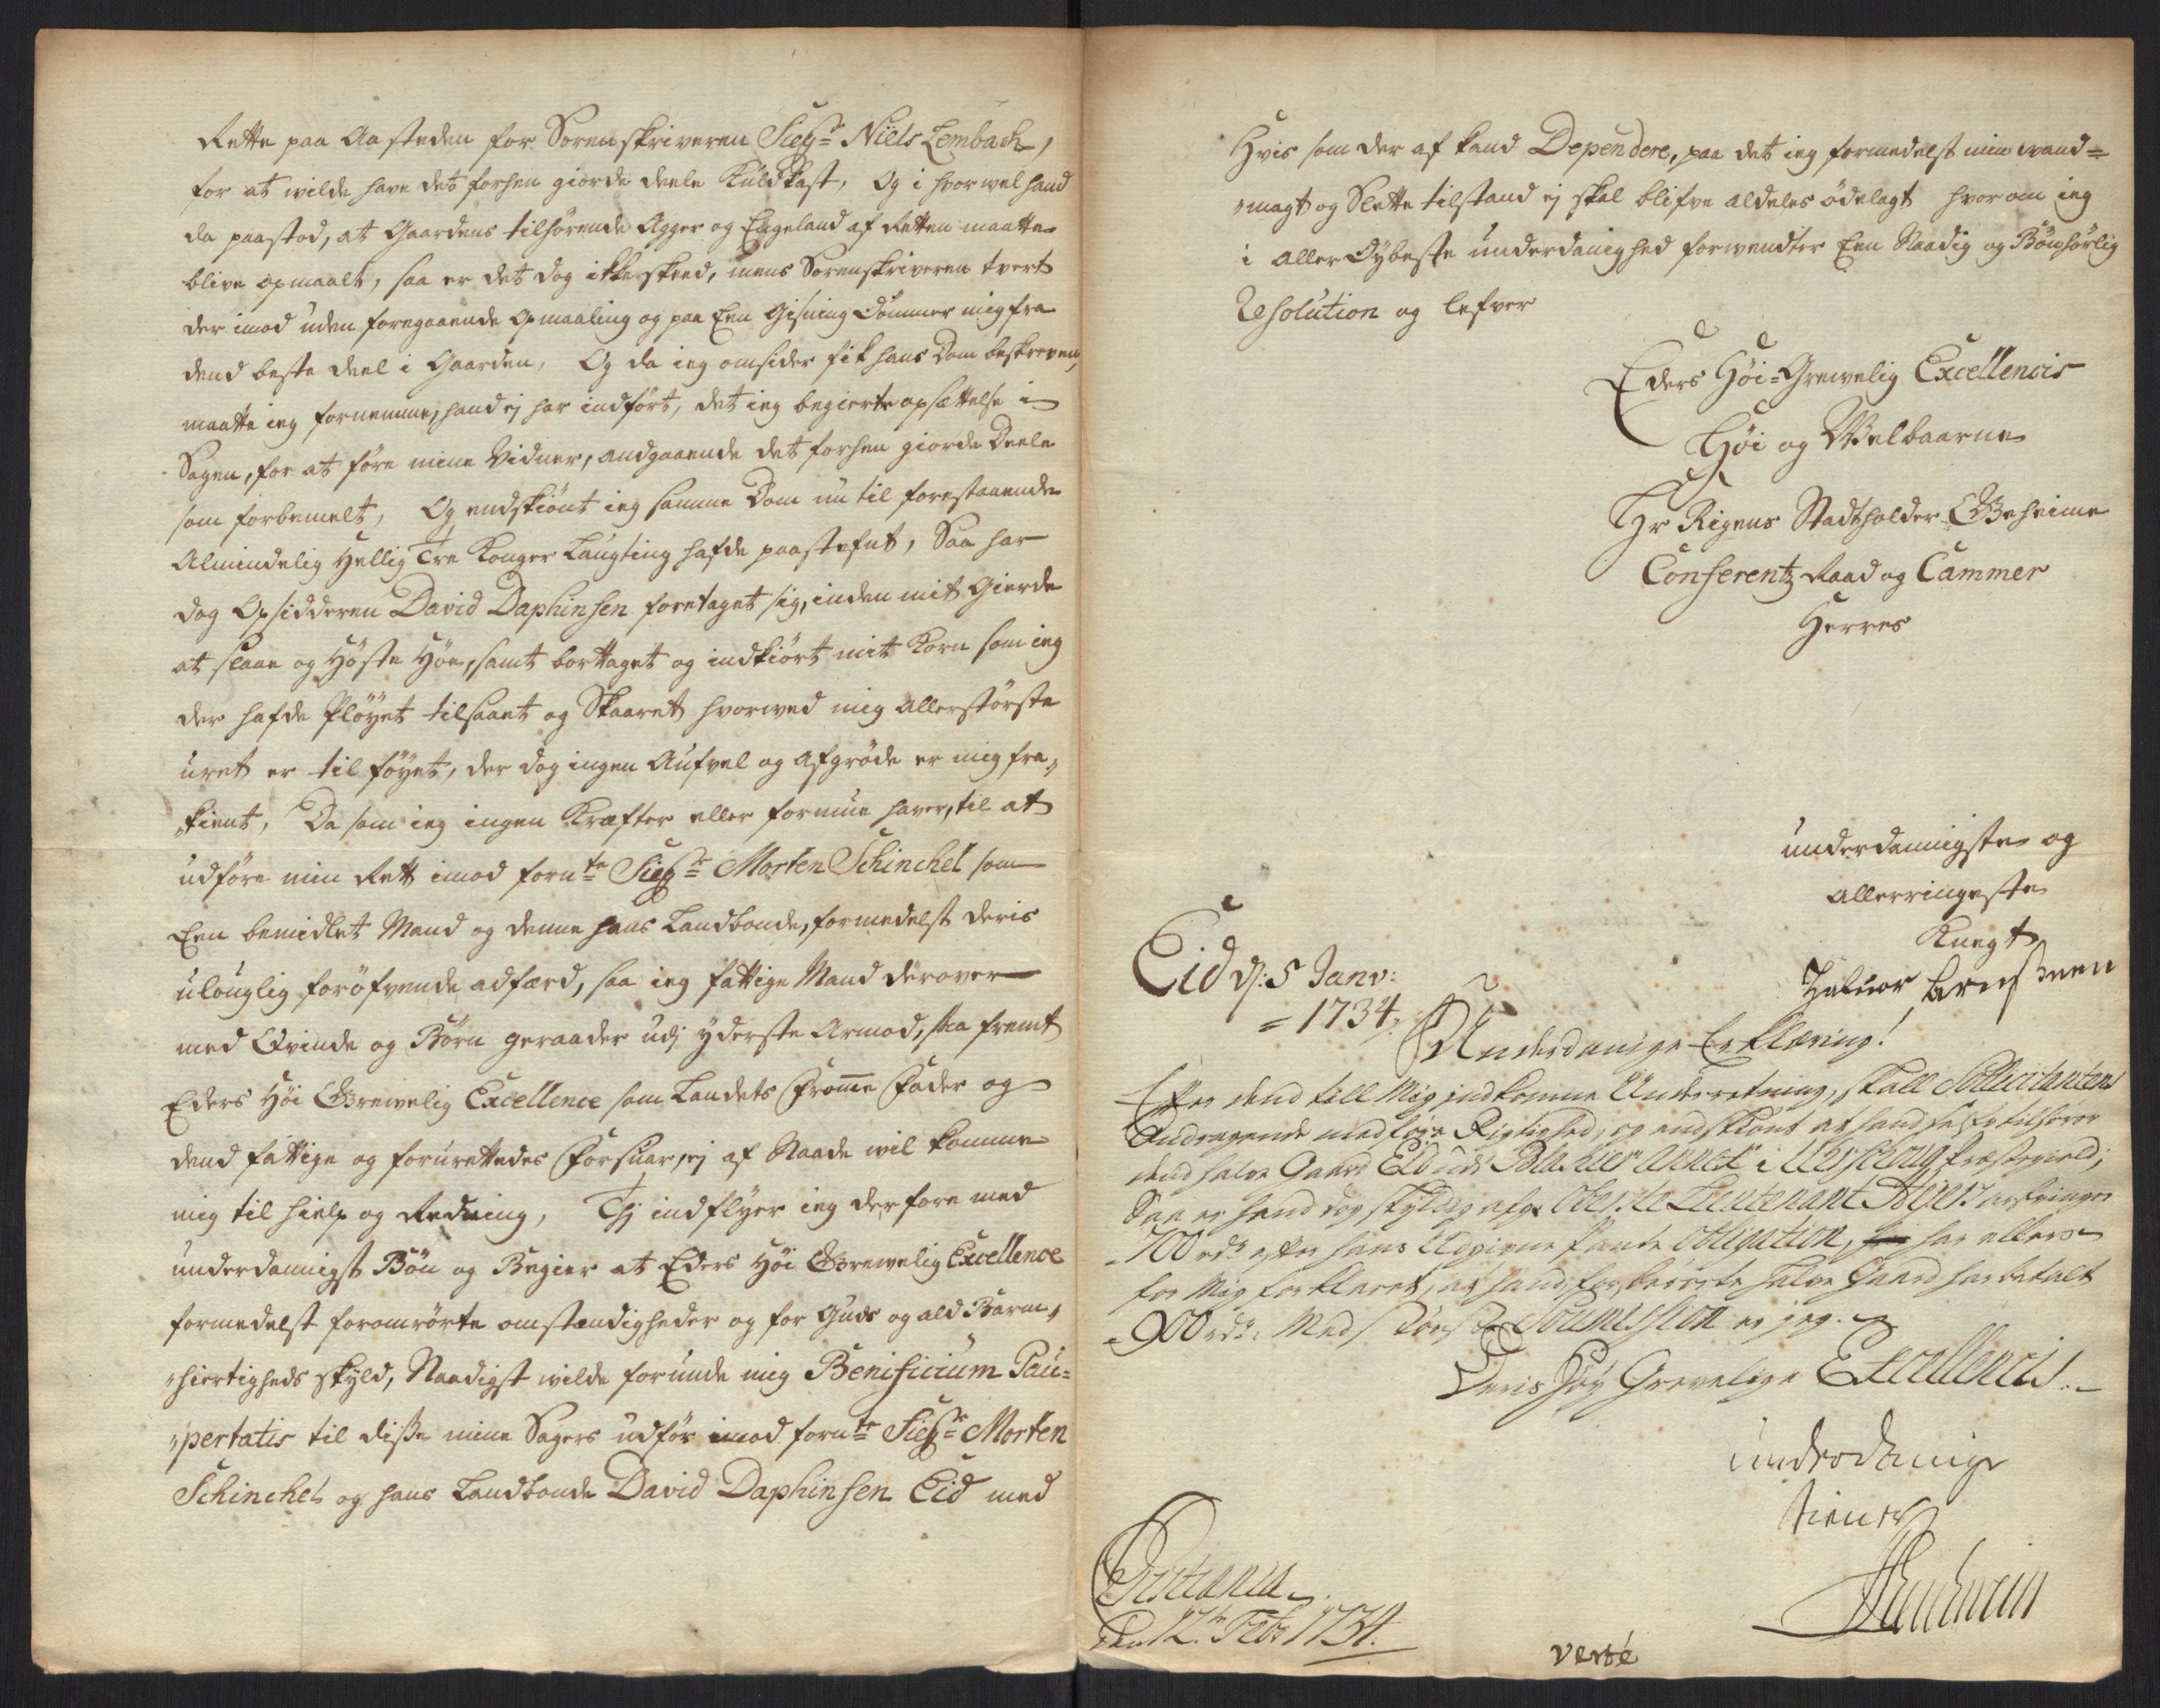 Rette paa Aasteden for Sorenskriveren Sieg^r Niels Lembach,
for at wilde have det forhen giorde deele Kuldkast, Og i hvorwel hand
da paastod, at Gaardens tilhørende Agger og Engeland af Retten maatte
blive opmaalt, saa er det dog ikke skeed, mens Sorenskriveren tvert
der imod uden foregaaende Opmaaling og paa Een Gisning Dømmer mig fra
dend beste deel i Gaarden, Og da ieg omsider fik hans Dom beskreven,
maatte ieg fornemme, hand ej har indført, det ieg begierte opsættelse i
Sagen, for at føre mine Vidner, andgaaende det forhen giorde Deele
som forbemelt, Og endskiønt ieg samme Dom nu til forestaaende
Almindelig Hellig Tre Konger Laugting hafde paastefnt, Saa har
dog Opsidderen David Daphinsen foretaget sig, inden mit Gierde
at slaae og Høste Høe, samt borttaget og indkiørt mit Korn som ieg
der hafde Pløyet tilsaaet og Skaaret hvorwed mig Allerstørste
uret er til føyet, der dog ingen Aufvel og Afgrøde er mig fra„
„kient, Da som ieg ingen Kræfter eller formue haver, til at
udføre min Rett imod forn^te Sieg^r Morten Schinchel som
Een bemidlet Mand og denne hans Landbonde, formedelst deris
ulouglig forøfvende adfærd, saa ieg fattige Mand derover
med Qvinde og Børn geraader udj yderste Armod, saa fremt
Eders Høi Grewelig Excellence som Landets Fromme Fader og
dend fattige og forurettedes Forsuar, ej af Naade wil komme
mig til hielp og Redning, Thj indflyer ieg derfore med
underdannigst Bøn og Begier at Eders Høi Grewelig Excellence
formedelst foromrørte omstændigheder og for Guds og ald Barm„
„hiertigheds skyld, Naadigst wilde forunde mig Benificium Pau=
„pertatis til disse mine Sagers udfør imod forn^te Sieg^r Morten
Schinchel og hans Landbonde David Daphinsen Eid med
Hvis som der af kand Dependere, paa det ieg formedelst min wand=
„magt og Slette tilstand ej skal blifve aldeles ødelagt hvorom ieg
i Aller Dybeste underdanighed forwendter Een Naadig og Bønhørlig
Resolution og lefver
Eders Høi-Grewelig Excellencis
Høi og Welbaarne
Hr Rigens Stadtholder Geheime
Conferentz Raad og Cammer
Herres
underdannigste og
Allerringeste
Knegt
Halvor
Eid d: 5 Janv:
= 1734.
Underdanige Erklæring!
Efter dend till Mig indkomne Underretning, skall Sollicitantens
Andragende medføre Rigtighed, og endskiønt at hand selv tilhører
dend halve Gaard Eid udj Blakier Annex i Urschoug Præstegield,
Saa er hand dog skyldig afg: Oberste Lieutenant arfvinger
700 rd^r efter hans Udgivne Pante Obligation, har ellers
for Mig forklaret, at hand for berørte halve Gaard har betalt
900 rd^r. Med Soumission er jeg.
Deris Høy Grevelige Excellencis.
underdanige
tiener
Christiania
den 12^te Feb: 1734.
verté